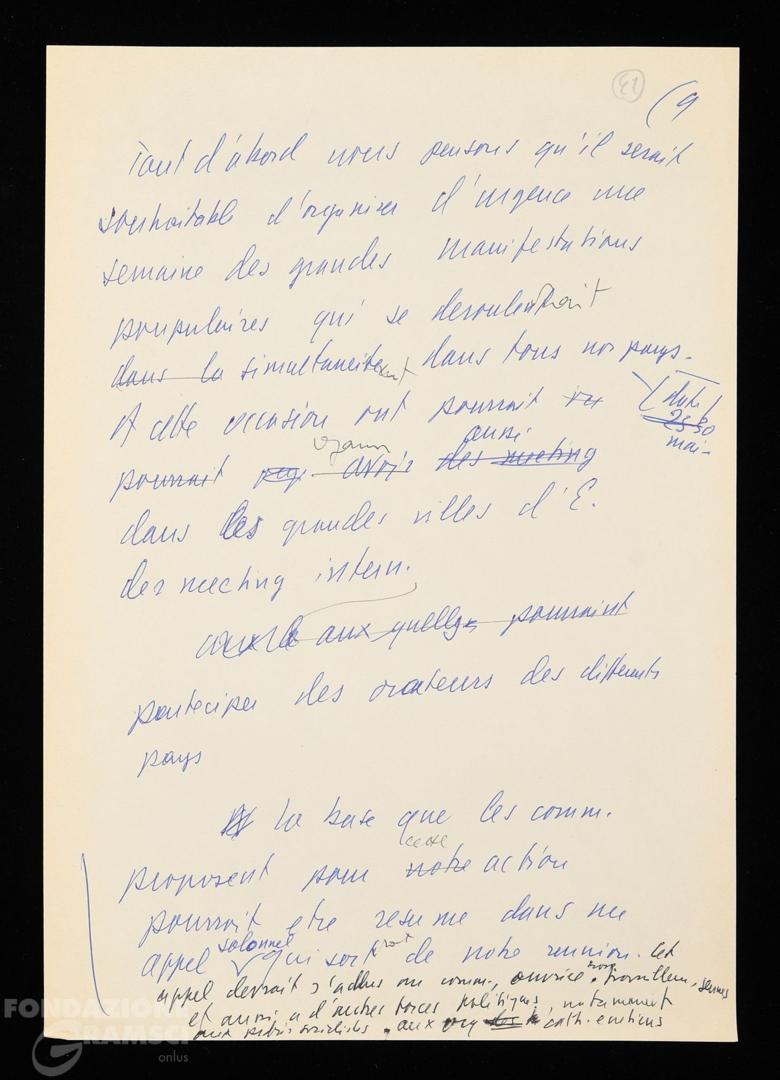 41
(9
Tout d'abord nous pensons qu'il serait
souhaitable d'organiser d'urgence une
semaine des grandes manifestations
poupulaires qui se deroulent
dans la simultaneite dans tous nos pays.
A cette occasion ont pourrait
(date
25 30
mai-
aussi
pourrait avoir des meeting
dans les grandes villes d'E.
des meeting intern.
aux quelles pourraint
partecipes des orateurs des differents
pays
la base que les comm.
cette
proposent pour notre action
pourrait etre resume dans une
solonnel
appel qui sort de notre reunion. Cet
appel devrait s'adres au comm., ouvrier, travailleurs,
et aussi a d'autres forces politiques, notamment
aux partis socialistes, aux org cath.
FONDAZIONE
GRAMSCI
onlus